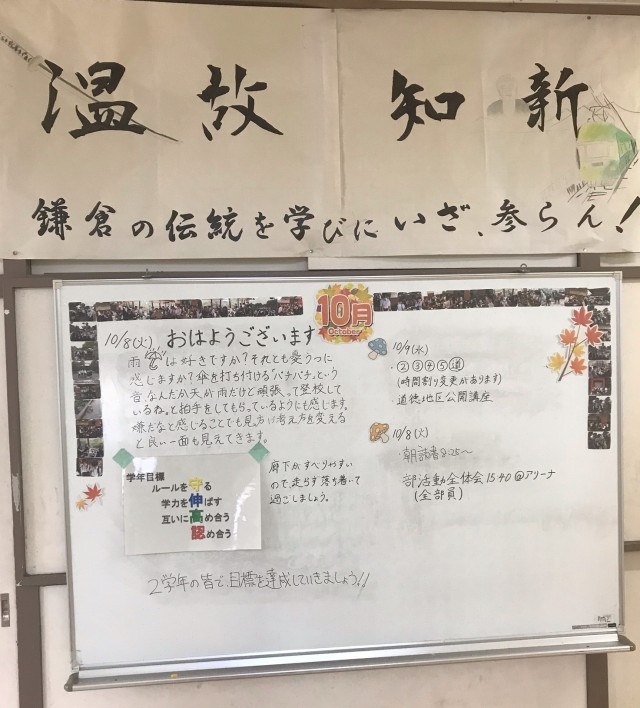 温故知新
鎌倉の伝統を学びにいざ、参らん!
10月
October
10/8(火) おはようございます
雨は好きですか?それとも憂うつに
感じますか?傘を打ち付ける"パチパチ"という
音、なんだか天が雨だけど頑張って登校して
いるね。と拍手をしてもらっているようにも感じます。
嫌だなと感じることでも見方に考え方を変える
と良い一面も見えてきます。
学年目標
ルールを守る
学力を伸ばす
互いに高め合う
認め合う
廊下がすべりやすい
ので、走らず落ち着いて
過ごしましょう。
2学年の皆で、目標を達成していきましょう!!
10/9(水)
・②③④⑤道
(時間割り変更があります)
・道徳地区公開講座
10/8(火)
・朝読書8:25〜
部活動全体会15:40@アリーナ
(全部員)